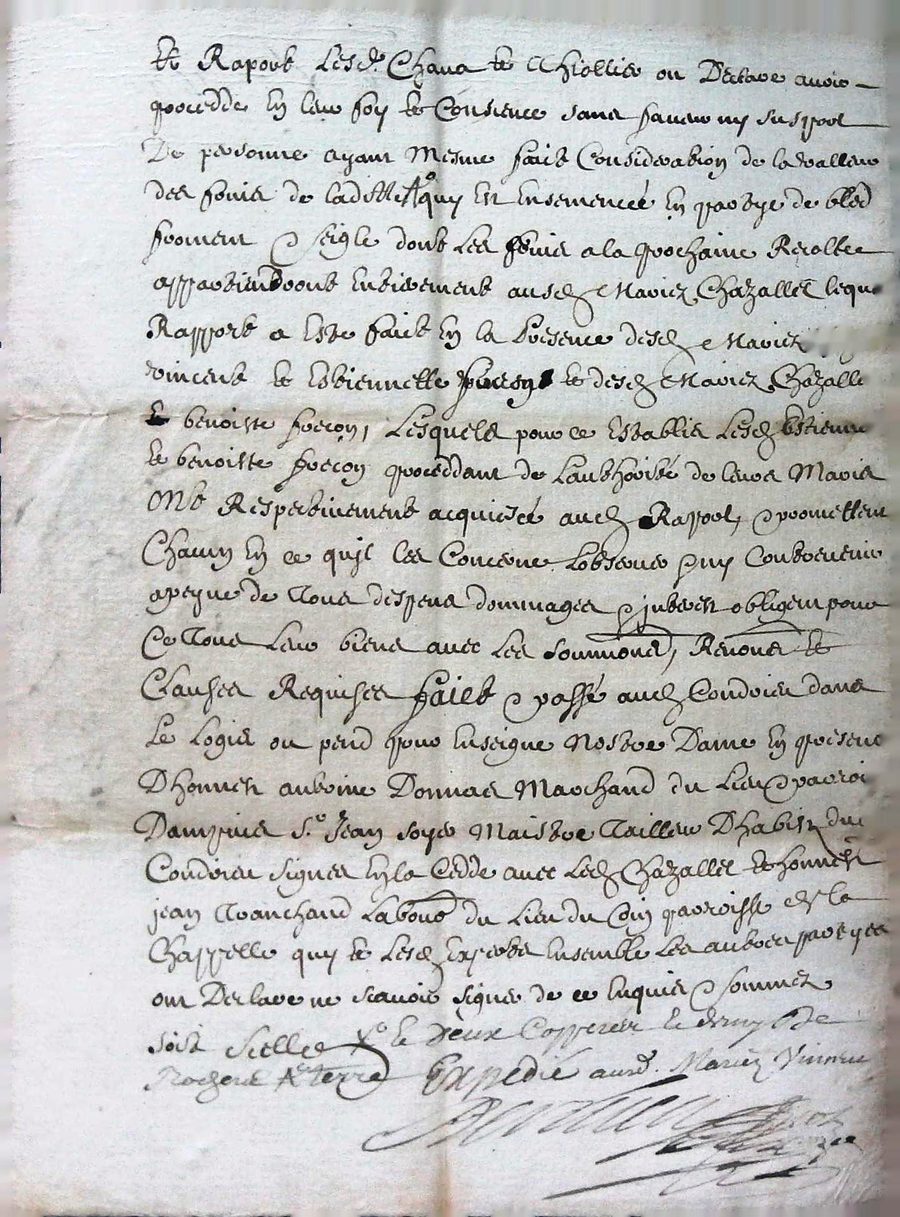 Et Raport Lesd. Chana et Thiollier on Declare avoir
procedde En leur foy et Consience sans faveur ny susport
De personne ayant Mesme fait Consideration de la valleur
des fruis de laditte quy En Ensemencée En partye de bled
froment & seigle dont Les fruis a la prochaine Recolte
appartiendront Entierement ausd Mariez Chazallet lequel
Rapport a Este faict En la Presence desd Mariez
Vincent et Estiennette et desd Mariez Chazalle
benoiste freçon, Lesquels pour ce Establis Lesd Estienne
et benoiste freçon proceddant de Lauthorité de leurs Maris
Ont Respectivement acquiescé aud Raport, & promettent
Chacun En ce quil les Concerne Lobserver & ny Contrevenir
a peyne de Tous despens dommages & interest obligent pour
Ce Tous Leur biens avec Les soumions, Renons et
Clauses Requises faict & passé aud Condrieu dans
Le Logis ou pend pour Enseigne Nostre Dame En presence
Dhonnest antoine Donnas Marchand du Lieu & parroi
Dampuis Sr. Jean Maistre Tailleur Dhabitz dud
Condrieu signes En la Cedde avec Led Chazallet et honnest
jean Tranchand Labour du Lieu du Coin parroisse de la
Chappelle quy et Lesd Experts Ensemble Les autres partyes
ont Declare ne scavoir signer de ce Enquis & sommez
soit scelle le deux
Expedié ausd. Mariez Vincent